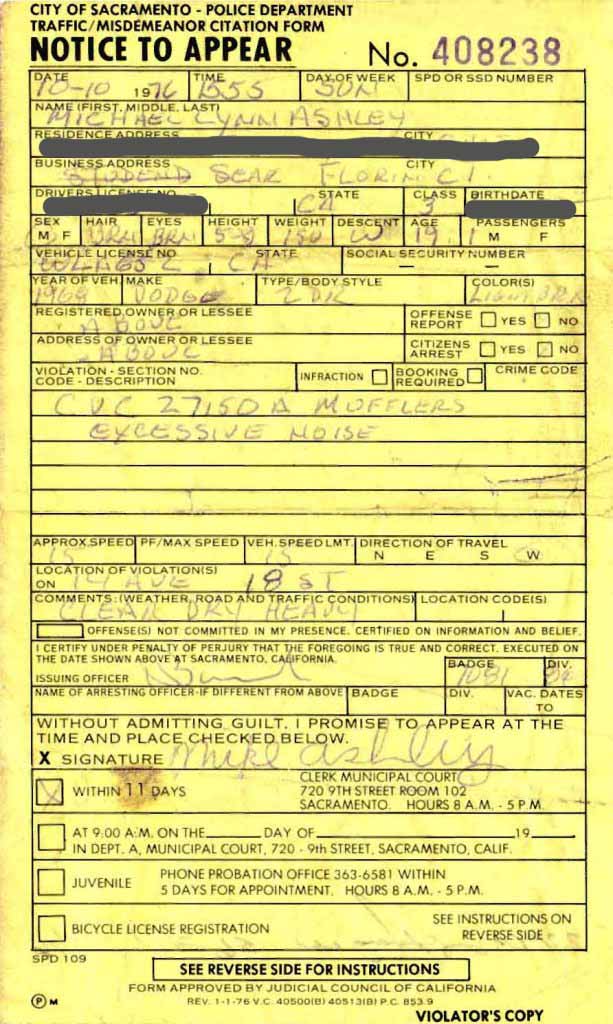 CITY OF SACRAMENTO - POLICE DEPARTMENT
TRAFFIC/MISDEMEANOR CITATION FORM
NOTICE TO APPEAR No. 408238
DATE TIME DAY OF WEEK SPD OR SSD NUMBER
10-10 1976 1555 SUN
NAME (FIRST, MIDDLE, LAST)
MICHAEL LYNN ASHLEY
RESIDENCE ADDRESS CITY
BUSINESS ADDRESS CITY
FLORIN
DRIVERS LICENSE NO. STATE CLASS BIRTHDATE
CA 3
SEX HAIR EYES HEIGHT WEIGHT DESCENT AGE PASSENGERS
M F BRN BRN 5-9 150 W 19 1 M F
VEHICLE LICENSE NO STATE SOCIAL SECURITY NUMBER
CA - -
YEAR OF VEH. MAKE TYPE/BODY STYLE COLOR(S)
1968 DODGE 2 DR LIGHT BRN
REGISTERED OWNER OR LESSEE OFFENSE REPORT YES NO
ABOVE
ADDRESS OF OWNER OR LESSEE CITIZENS ARREST YES NO
ABOVE
VIOLATION - SECTION NO. INFRACTION BOOKING REQUIRED CRIME CODE
CODE - DESCRIPTION
CVC 27150A MUFFLERS
EXCESSIVE NOISE
APPROX.SPEED PF/MAX SPEED VEH. SPEED LMT. DIRECTION OF TRAVEL
15 15 N E S W
LOCATION OF VIOLATION(S)
ON 14 AVE 18 ST
COMMENTS: (WEATHER, ROAD AND TRAFFIC CONDITIONS) LOCATION CODE(S)
CLEAR DRY HEAVY
OFFENSE(S) NOT COMMITTED IN MY PRESENCE. CERTIFIED ON INFORMATION AND BELIEF.
I CERTIFY UNDER PENALTY OF PERJURY THAT THE FOREGOING IS TRUE AND CORRECT. EXECUTED ON
THE DATE SHOWN ABOVE AT SACRAMENTO, CALIFORNIA. BADGE DIV.
ISSUING OFFICER 1081
NAME OF ARRESTING OFFICER-IF DIFFERENT FROM ABOVE BADGE DIV. VAC. DATES
TO
WITHOUT ADMITTING GUILT, I PROMISE TO APPEAR AT THE
TIME AND PLACE CHECKED BELOW.
X SIGNATURE Mike Ashley
X WITHIN 11 DAYS CLERK MUNICIPAL COURT
720 9TH STREET ROOM 102
SACRAMENTO. HOURS 8 A.M. - 5 P.M.
AT 9:00 A.M. ON THE DAY OF 19
IN DEPT. A, MUNICIPAL COURT, 720 - 9th STREET, SACRAMENTO, CALIF.
JUVENILE PHONE PROBATION OFFICE 363-6581 WITHIN
5 DAYS FOR APPOINTMENT. HOURS 8 A.M. - 5 P.M.
BICYCLE LICENSE REGISTRATION SEE INSTRUCTIONS ON
REVERSE SIDE
SPD 109
SEE REVERSE SIDE FOR INSTRUCTIONS
FORM APPROVED BY JUDICIAL COUNCIL OF CALIFORNIA
P M REV. 1-1-76 V.C. 40500(B) 40513(B) P.C. 853.9
VIOLATOR'S COPY